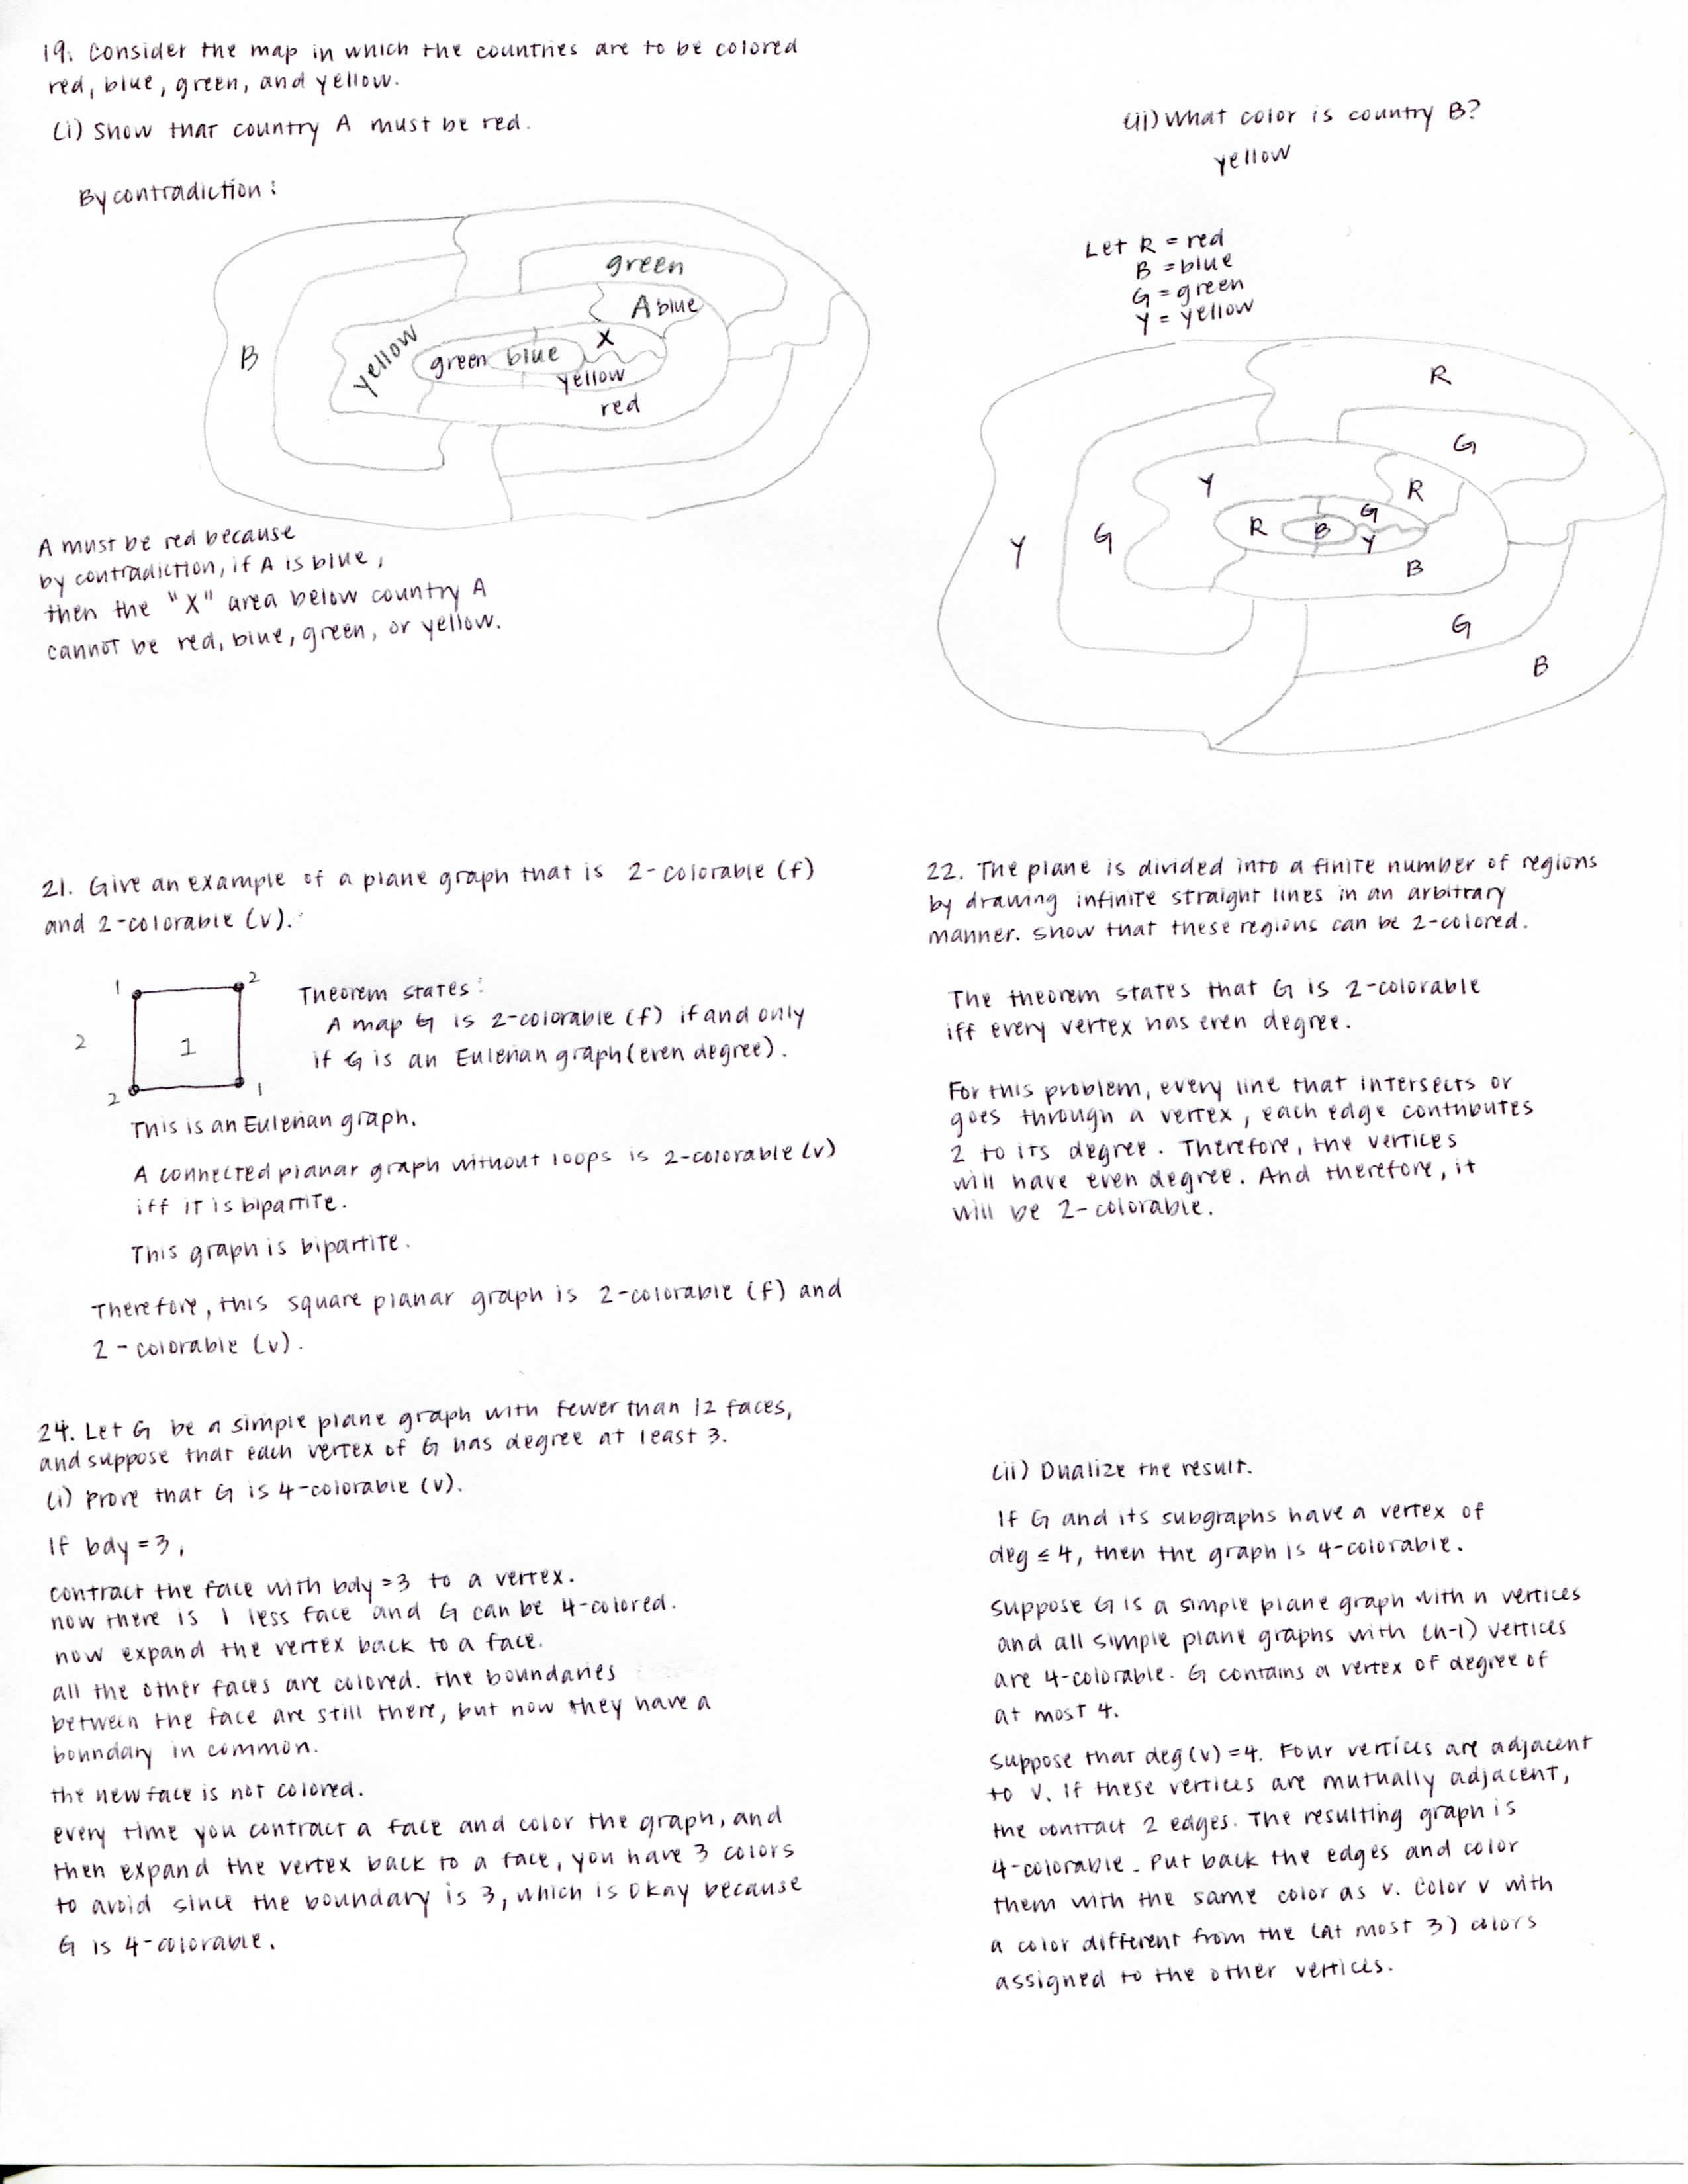 19. Consider the map in which the countries are to be colored
red, blue, green, and yellow.
(i) Show that country A must be red.
By contradiction:
green
A blue
X
B
yellow
green blue
yellow
red
A must be red because
by contradiction, if A is blue,
then the "X" area below country A
cannot be red, blue, green, or yellow.
(ii) What color is country B?
yellow
Let R = red
B = blue
G = green
Y = yellow
R
G
Y
R
G
R
B
Y
G
Y
B
G
B
21. Give an example of a plane graph that is 2-colorable (f)
and 2-colorable (v).
1
2
2
1
2
1
Theorem states:
A map G is 2-colorable (f) if and only
if G is an Eulerian graph (even degree).
This is an Eulerian graph.
A connected planar graph without loops is 2-colorable (v)
iff it is bipartite.
This graph is bipartite.
Therefore, this square planar graph is 2-colorable (f) and
2-colorable (v).
22. The plane is divided into a finite number of regions
by drawing infinite straight lines in an arbitrary
manner. Show that these regions can be 2-colored.
The theorem states that G is 2-colorable
iff every vertex has even degree.
For this problem, every line that intersects or
goes through a vertex, each edge contributes
2 to its degree. Therefore, the vertices
will have even degree. And therefore, it
will be 2-colorable.
24. Let G be a simple plane graph with fewer than 12 faces,
and suppose that each vertex of G has degree at least 3.
(i) Prove that G is 4-colorable (v).
If bdy = 3,
contract the face with bdy = 3 to a vertex.
now there is 1 less face and G can be 4-colored.
now expand the vertex back to a face.
all the other faces are colored. the boundaries
between the face are still there, but now they have a
boundary in common.
the new face is not colored.
every time you contract a face and color the graph, and
then expand the vertex back to a face, you have 3 colors
to avoid since the boundary is 3, which is okay because
G is 4-colorable.
(ii) Dualize the result.
If G and its subgraphs have a vertex of
deg ≤ 4, then the graph is 4-colorable.
Suppose G is a simple plane graph with n vertices
and all simple plane graphs with (n-1) vertices
are 4-colorable. G contains a vertex of degree of
at most 4.
Suppose that deg(v) = 4. Four vertices are adjacent
to v. If these vertices are mutually adjacent,
the contract 2 edges. The resulting graph is
4-colorable. Put back the edges and color
them with the same color as v. Color v with
a color different from the (at most 3) colors
assigned to the other vertices.